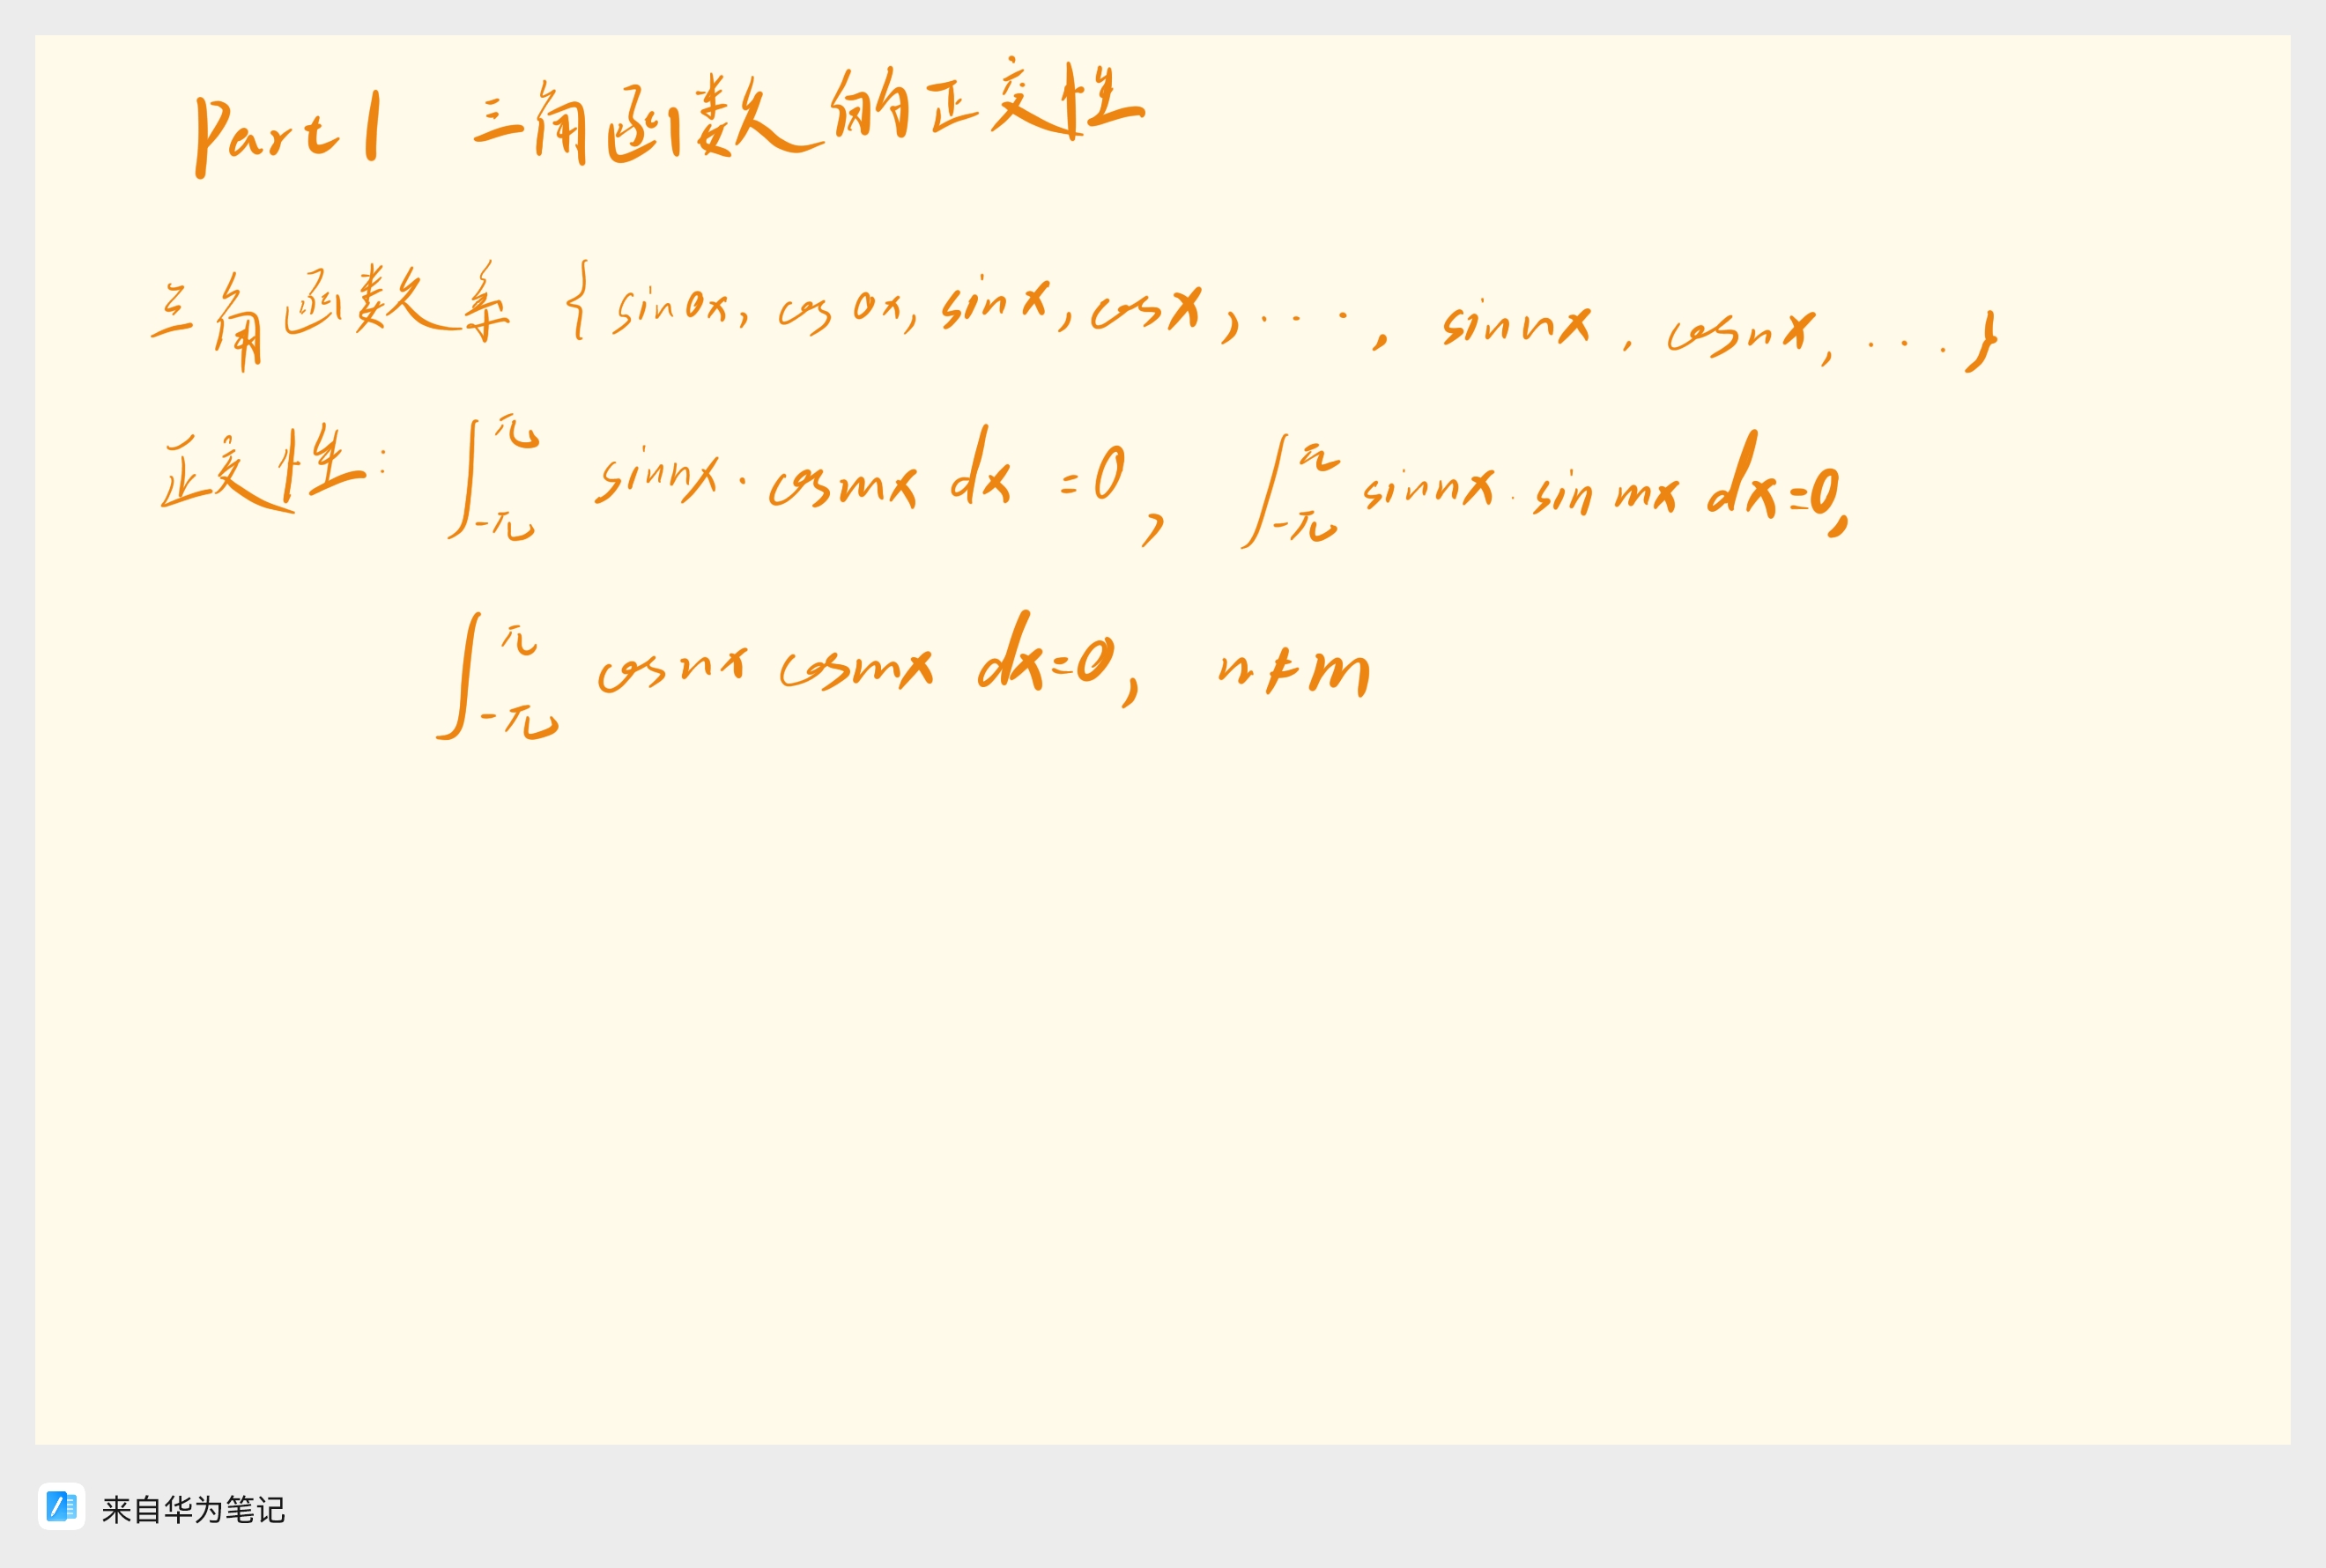 Part 1 三角函数的正交性
三角函数系 { sin0x, cos0x, sinx, cosx, ..., sinnx, cosnx, ...,
正交性: ∫_{-π}^{π} sinnx · cosmx dx = 0, ∫_{-π}^{π} sinnx · sinmx dx=0,
∫_{-π}^{π} cosnx cosmx dx=0, n≠m
来自华为笔记